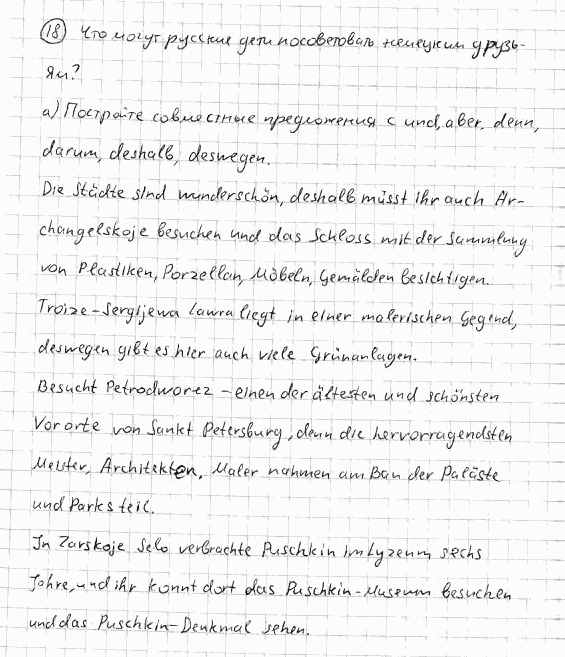 18 Что могут русские дети посоветовать немецким друзь-
ям?
а) Постройте совместные предложения с und, aber, denn,
darum, deshalb, deswegen.
Die Städte sind wunderschön, deshalb müsst ihr auch Ar-
changelskoje besuchen und das Schloss mit der Sammlung
von Plastiken, Porzellan, Möbeln, Gemälden besichtigen.
Troize-Sergijewa Lawra liegt in einer malerischen Gegend,
deswegen gibt es hier auch viele Grünanlagen.
Besucht Petrodworez - einen der ältesten und schönsten
Vororte von Sankt Petersburg, denn die hervorragendsten
Meister, Architekten, Maler nahmen am Bau der Paläste
und Parks teil.
In Zarskoje Selo verbrachte Puschkin im Lyzeum sechs
Jahre, und ihr konnt dort das Puschkin-Museum besuchen
und das Puschkin-Denkmal sehen.